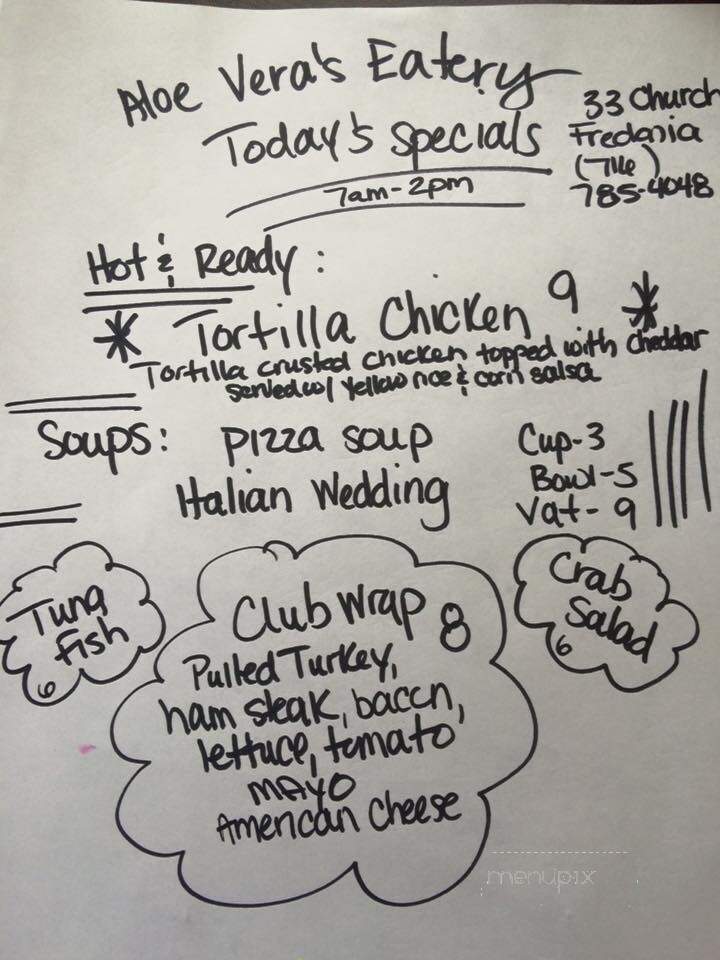 Aloe Vera's Eatery
Today's Specials
7am-2pm
33 Church
Fredonia
(716)
785-4048
Hot & Ready:
* Tortilla Chicken 9 *
Tortilla crusted chicken topped with cheddar
served w/ yellow rice & corn salsa
Soups: Pizza soup
Italian Wedding
Cup-3
Bowl-5
Vat-9
Tuna
Fish
6
Club Wrap 8
Pulled Turkey,
ham steak, bacon,
lettuce, tomato
mayo
American cheese
Crab
Salad
6
menupix